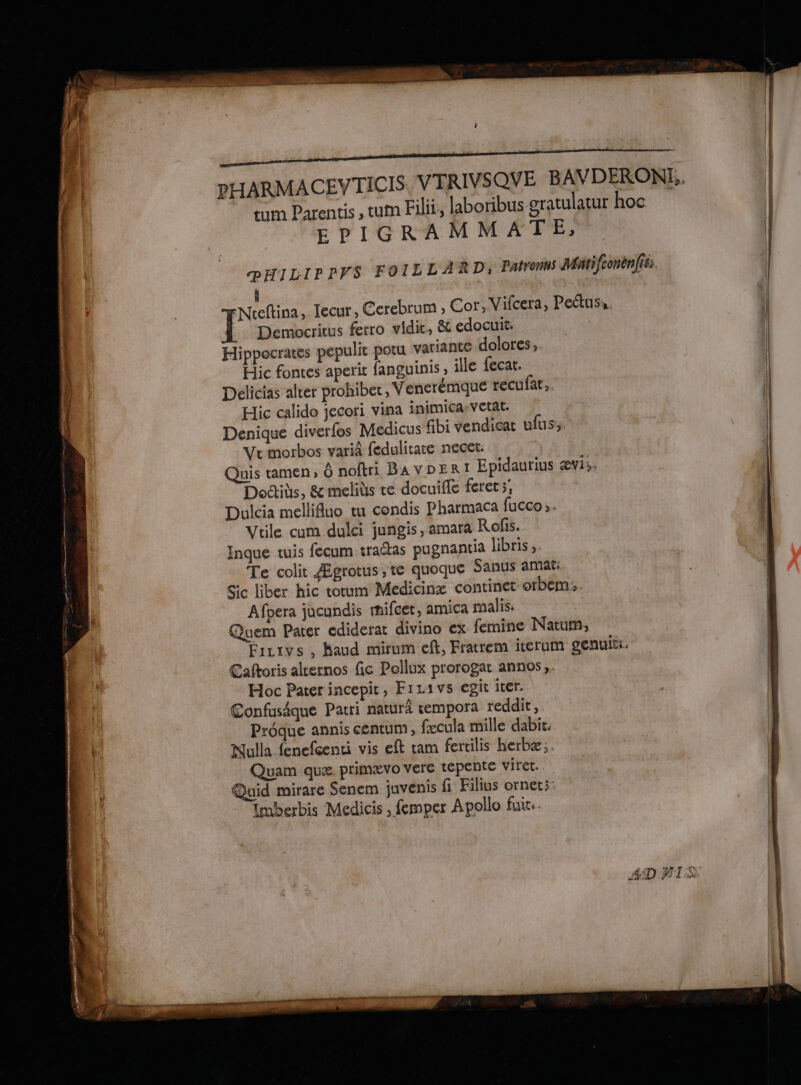 PHARMACEVTICIS VTRIVSQVE BAVDERONI,
tum Parentis, tum Filii, laboribus gratulatur hoc
EPIGRAMMATE,
PHILIPPVS FOILLARD, Patronus Matiſconenſis.
INteſtina, Iecur, Cerebrum, Cor, Viſcera, Pectus,
Democritus ferro vidit, & edocuit.
Hippocrates pepulit potu variante dolores,
Hic fontes aperit ſanguinis, ille ſecat.
Delicias alter prohibet, Venerémque recuſat,
Hic calido jecori vina inimica vetat.
Denique diverſos Medicus ſibi vendicat uſus,
Vt morbos variâ ſedulitate necet.
Quis tamen, ô noſtri BAVDERI Epidaurius ævi,
Doctiùs, & meliùs te docuiſſe feret;
Dulcia mellifluo tu condis Pharmaca ſucco,
Vtile cum dulci jungis, amara Roſis.
Inque tuis ſecum tractas pugnantia libris,
Te colit Ægrotus, te quoque Sanus amat:
Sic liber hic totum Medicinæ continet orbem,
Aſpera jucundis miſcet, amica malis.
Quem Pater ediderat divino ex ſemine Natum,
FILIVS, haud mirum eſt, Fratrem iterum genuit.
Caſtoris alternos ſic Pollux prorogat annos,
Hoc Pater incepit, FILIVS egit iter.
Confusáque Patri naturâ tempora reddit,
Próque annis centum, ſæcula mille dabit.
Nulla ſeneſcenti vis eſt tam fertilis herbæ,
Quam quæ primævo vere tepente viret.
Quid mirare Senem juvenis ſi Filius ornet;
Imberbis Medicis, ſemper Apollo fuit.
AD HIS